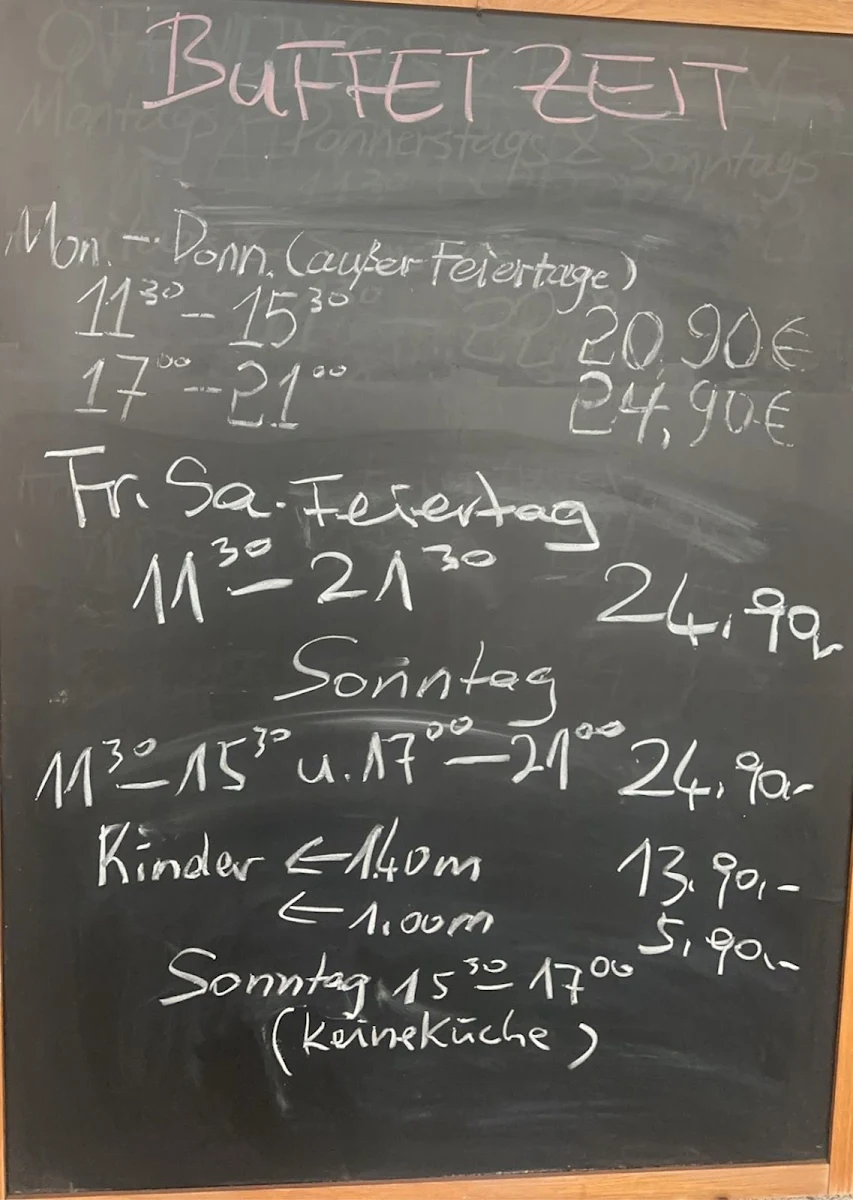 BUFFET ZEIT
Mon. - Donn. (außer Feiertage)
11³⁰ - 15³⁰ 20,90€
17⁰⁰ - 21⁰⁰ 24,90€
Fr. Sa. Feiertag
11³⁰ - 21³⁰ 24,90
Sonntag
11³⁰ - 15³⁰ u. 17⁰⁰ - 21⁰⁰ 24,90,-
Kinder <- 1.40m 13,90,-
<- 1.00m 5,90,-
Sonntag 15³⁰ - 17⁰⁰
(keine Küche)